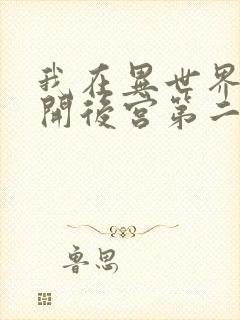 我在異世界
開後宮第二
魯思